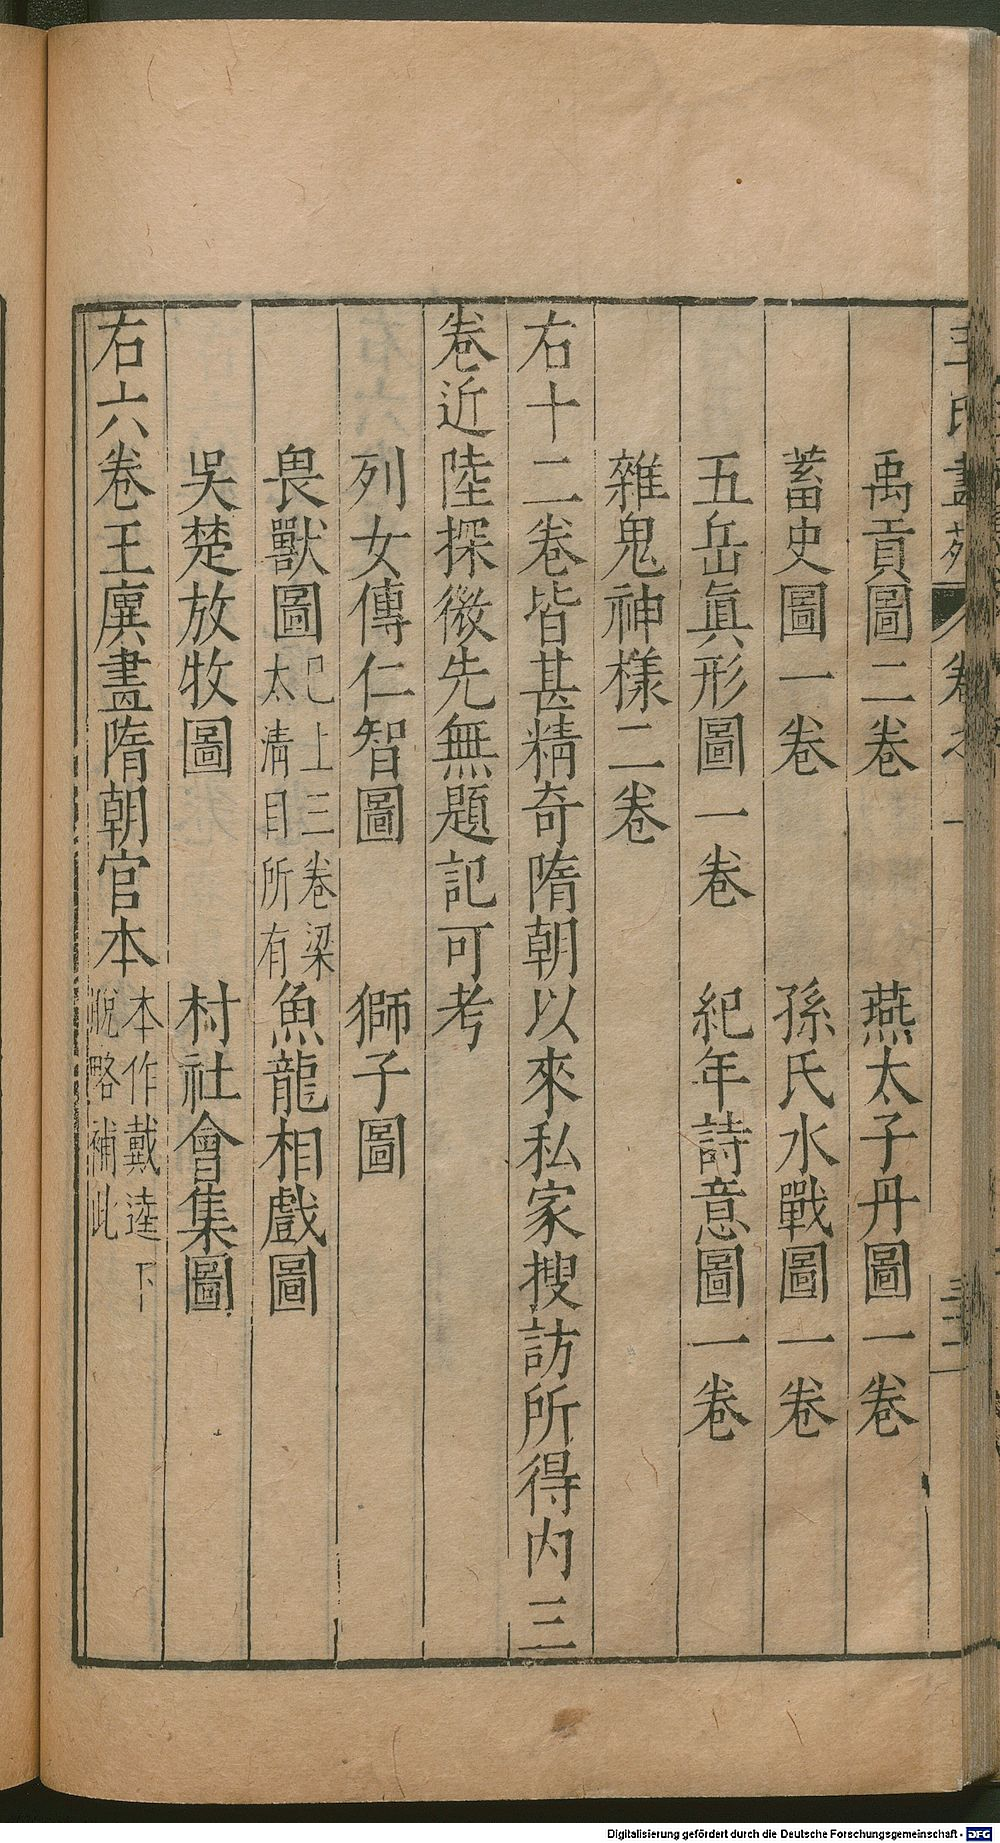 王氏畫苑 卷之一 三十二
禹貢圖二卷 燕太子丹圖一卷
蓄史圖一卷 孫氏水戰圖一卷
五岳眞形圖一卷 紀年詩意圖一卷
雜鬼神樣二卷
右十二卷皆甚精奇隋朝以來私家搜訪所得内三
卷近陸探微先無題記可考
列女傳仁智圖 獅子圖
畏獸圖 已上三卷梁太清目所有 魚龍相戲圖
吳楚放牧圖 村社會集圖
右六卷王廙畫隋朝官本 本作戴逵下脫略補此
Digitalisierung gefördert durch die Deutsche Forschungsgemeinschaft - DFG